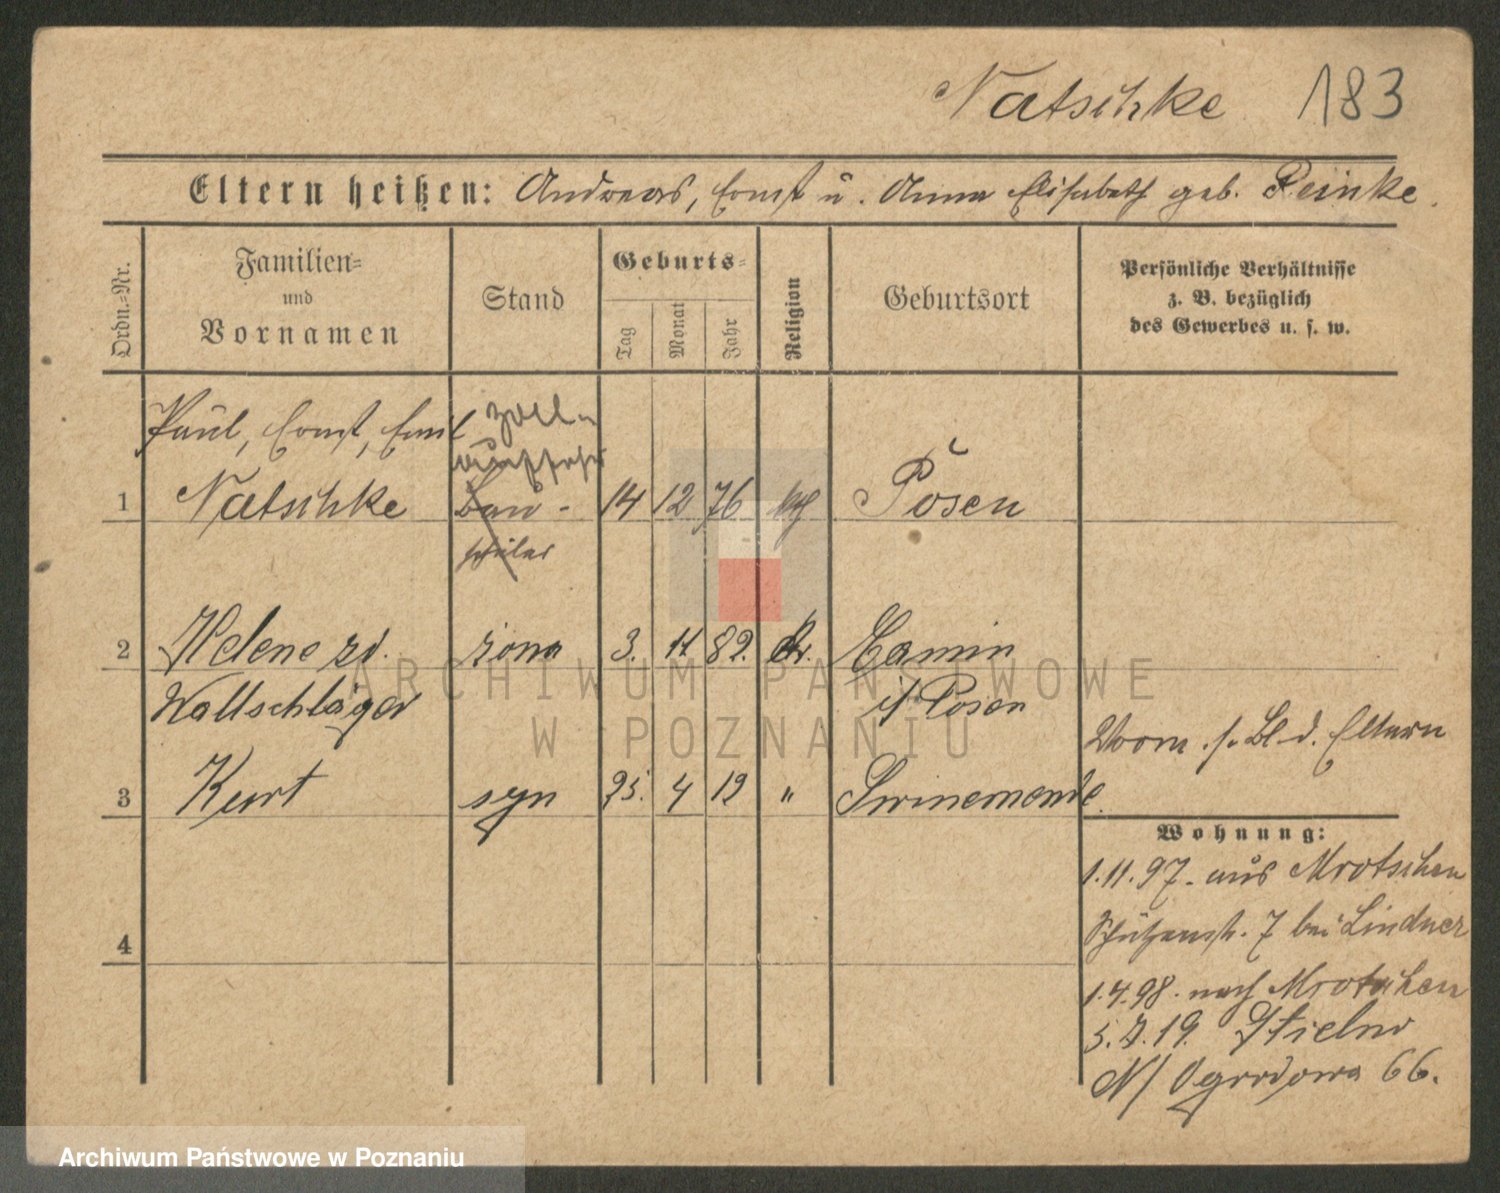 Natschke 183
Eltern heißen: Andreas, Ernst u. Anna Elisabeth geb. Reinke.
Ordn.=Nr.
Familien=
und
Vornamen
Stand
Geburts=
Tag
Monat
Jahr
Religion
Geburtsort
Persönliche Verhältnisse
z. B. bezüglich
des Gewerbes u. s. w.
Paul, Ernst, Emil
Zoll-
aufseher
1 Natschke Bau- 14 12 76 Posen
schüler
2 Helene zd. żona 3. 11 82. Camin
Wallschläger i/ Posen
Vorm. s. Bl. d. Eltern
3 Kurt syn 25. 4 12 " Swinemünde.
Wohnung:
1.11.97. aus Mrotschen
Schützenstr. 7 bei Lindner
4
1.4.98. nach Mrotschen
5.7.19.
N/ Ogrodowa 66.
ARCHIWUM PAŃSTWOWE
W POZNANIU
Archiwum Państwowe w Poznaniu